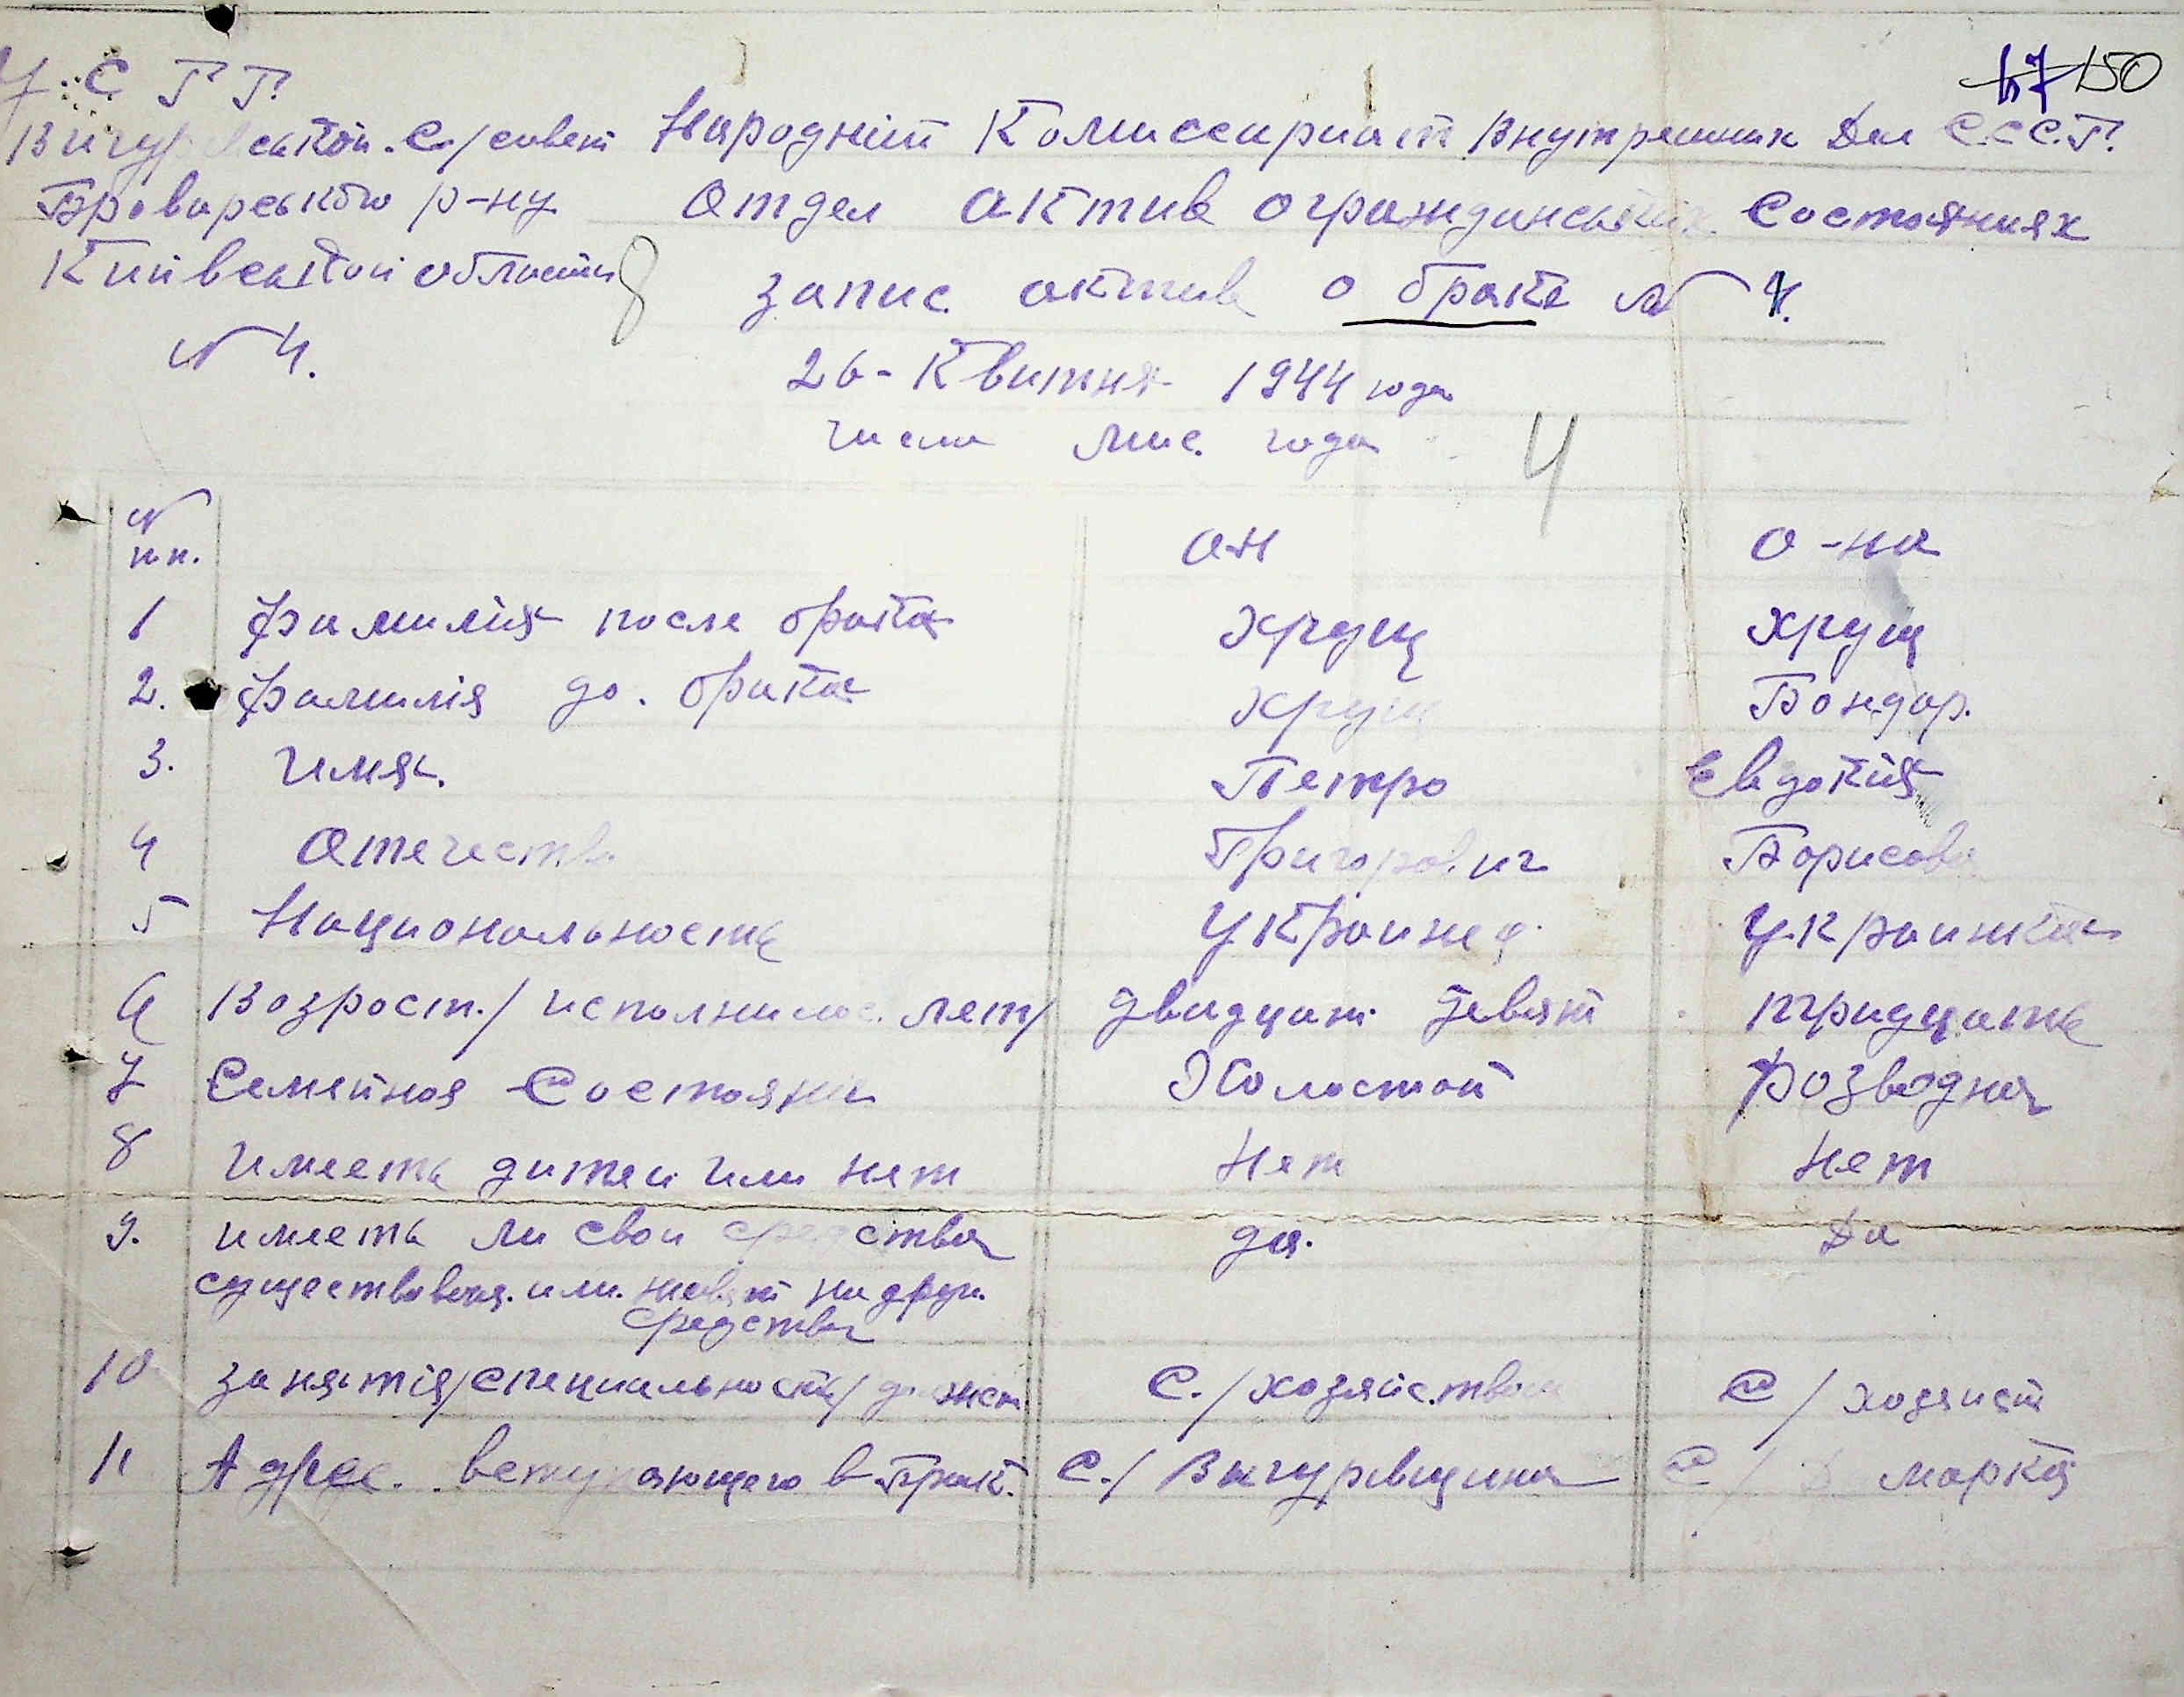 У. С. Р. Р.
150
Вигурівськой. С/совет Народній Комиссариат Внутренних Дел С.С.С.Р.
Броварського р-ну Отдел Актив о гражданських Состояниях
Киивськой области запис. актив о браке № 4.
№ 4.
26 - Квитня 1944 года
число мис. года
4
№ пп. он о-на
1 Фамилия после брака Хрущ Хрущ
2. Фамилія до. брака Хрущ Бондар.
3. имя. Петро Евдокия
4 Отечество Григорович Борисовна
5 Национальность Украинец. Украинка
6 Возрост./исполнилос. лет/ двадцат девят тридцать
7 Семейноя Состояние Холостой Розводная
8 имееть дитей или нет Нет Нет
9. имееть ли свои средства да. Да
существован. или. живет на друг.
средства
10 занятія/специальность/должст С./хозяйством С/хозяйст
11 Адрес. вступающего в брак. С./Вигуровщина С/ марка